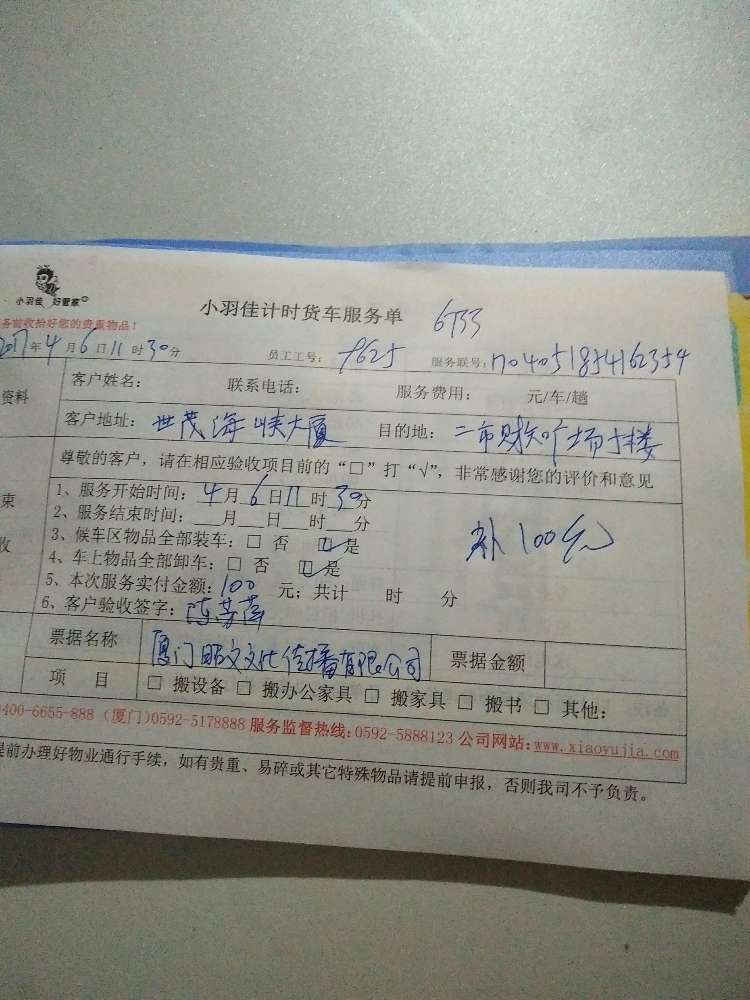 小羽佳 好管家
小羽佳计时货车服务单 6733
务前收拾好您的贵重物品!
2017年4月6日11时30分 员工工号: 9625 服务联号: no40518541 62354
资料 客户姓名: 联系电话: 服务费用: 元/车/趟
客户地址: 世茂海峡大厦 目的地: 二市财知广场十楼
尊敬的客户,请在相应验收项目前的“□”打“√”,非常感谢您的评价和意见
束
收
1、服务开始时间: 4月6日11时30分
2、服务结束时间: 月 日 时 分
3、候车区物品全部装车: □ 否 ☑ 是
4、车上物品全部卸车: □ 否 ☑ 是
补100元
5、本次服务实付金额: 100 元; 共计 时 分
6、客户验收签字: 陈芳萍
票据名称 厦门昭文文化传播有限公司 票据金额
项 目 □ 搬设备 □ 搬办公家具 □ 搬家具 □ 搬书 □ 其他:
400-6655-888 (厦门)0592-5178888 服务监督热线:0592-5888123 公司网站: www.xiaoyujia.com
提前办理好物业通行手续,如有贵重、易碎或其它特殊物品请提前申报,否则我司不予负责。